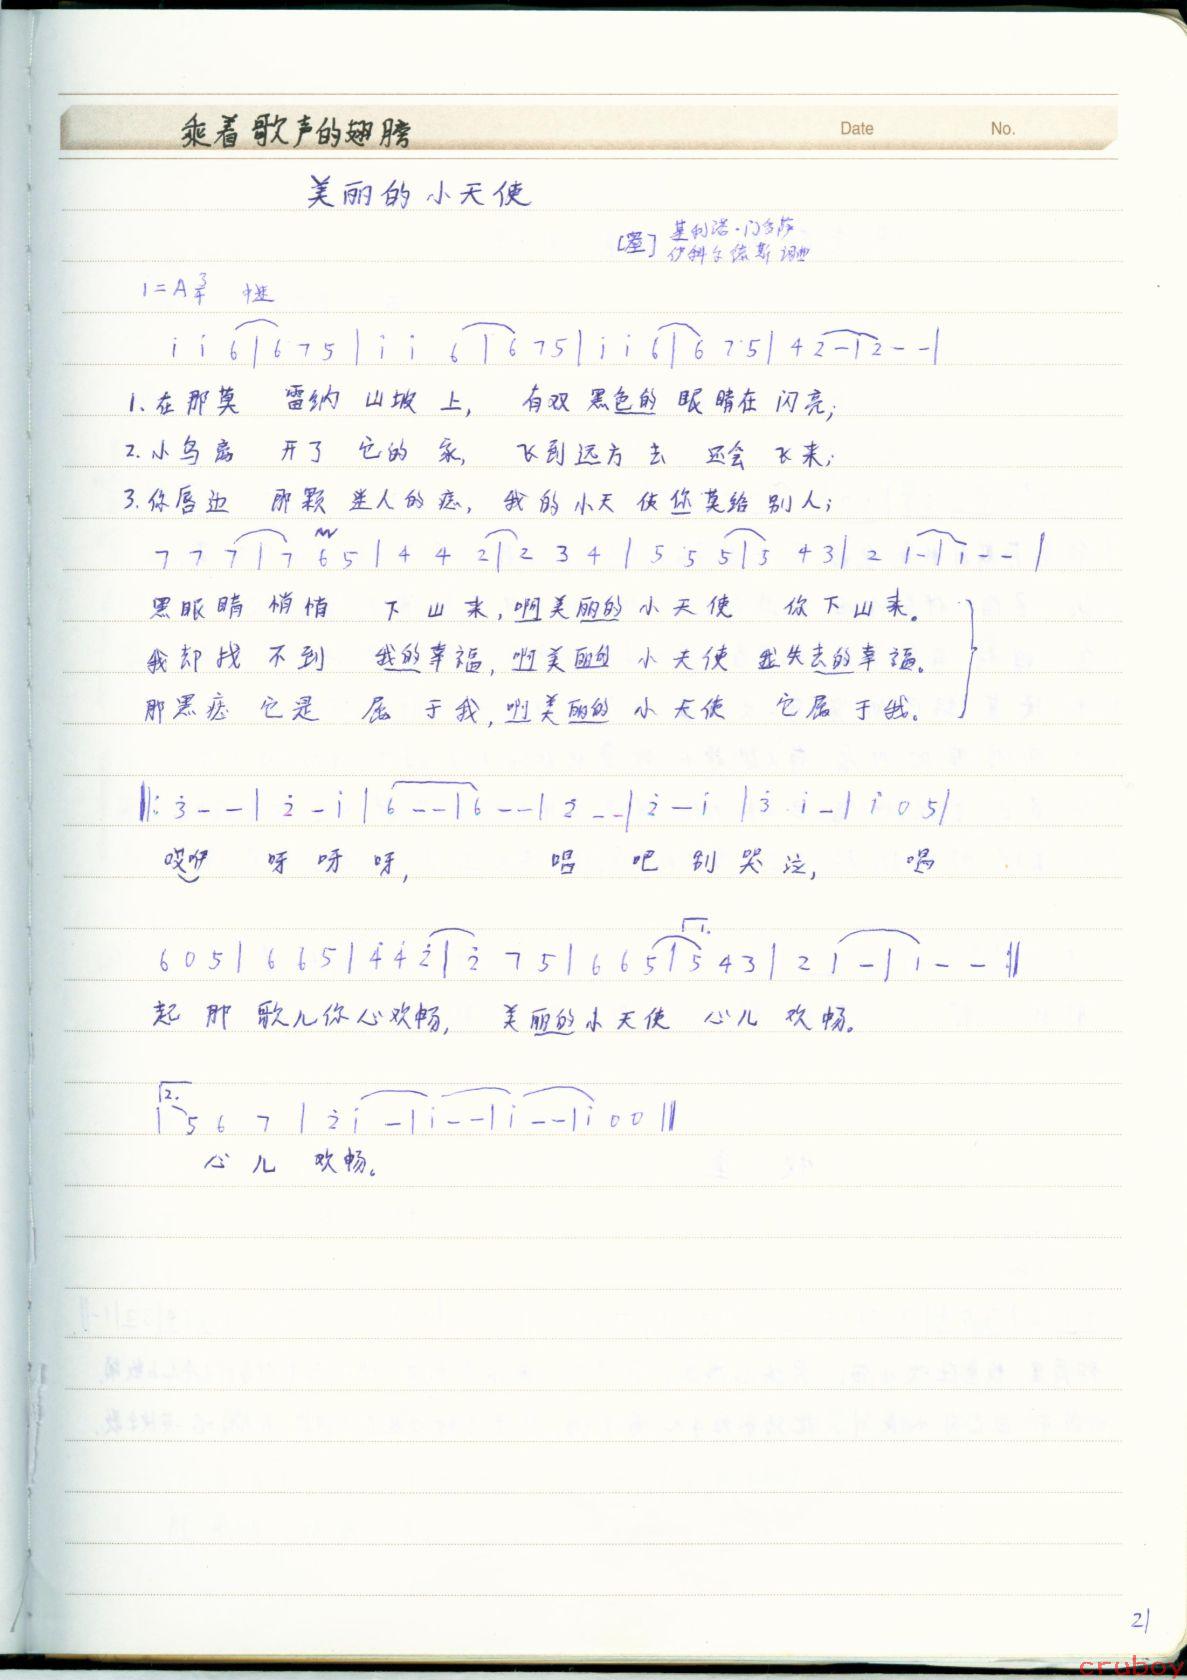 乘着歌声的翅膀
Date No.
美丽的小天使
[墨] 基利诺·门多萨
伊科尔德斯 词曲
1=A 3/4 中速
i i 6|6 7 5|i i 6|6 7 5|i i 6|6 7 5|4 2 -|2 - -|
1. 在那莫 雷纳 山坡 上, 有双 黑色的 眼睛在 闪亮;
2. 小鸟离 开了 它的 家, 飞到远方 去 还会 飞来;
3. 你唇边 那颗 迷人的痣, 我的小天 使你莫给 别人;
7 7 7|7 6 5|4 4 2|2 3 4|5 5 5|5 4 3|2 1 -|1 - -|
黑眼睛 悄悄 下 山 来, 啊美丽的 小 天使 你 下 山 来。
我却找 不 到 我的幸福, 啊美丽的 小 天使 我失去的幸福。
那黑痣 它是 属 于我, 啊美丽的 小 天使 它 属 于 我。
‖: 3 - -|2 - i|6 - -|6 - -|2 - -|2 - i|3 i -|i 0 5|
哎咿 呀 呀 呀, 唱 吧 别 哭 泣, 唱
1.
6 0 5|6 6 5|4 4 2|2 7 5|6 6 5|5 4 3|2 1 -|1 - - :‖
起 那 歌儿你 心欢畅, 美丽的 小天使 心儿 欢 畅。
2.
|5 6 7|2 i -|i - -|i - -|i 0 0‖
心 儿 欢畅。
21
cruboy